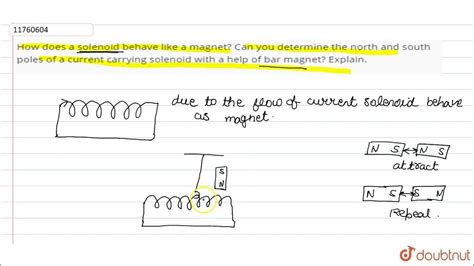 11760604
How does a solenoid behave like a magnet? Can you determine the north and south
poles of a current carrying solenoid with a help of bar magnet? Explain.
due to the flow of current solenoid behave
as magnet.
N S S N
attract
N S S N
Repeal.
S
N
doubtnut